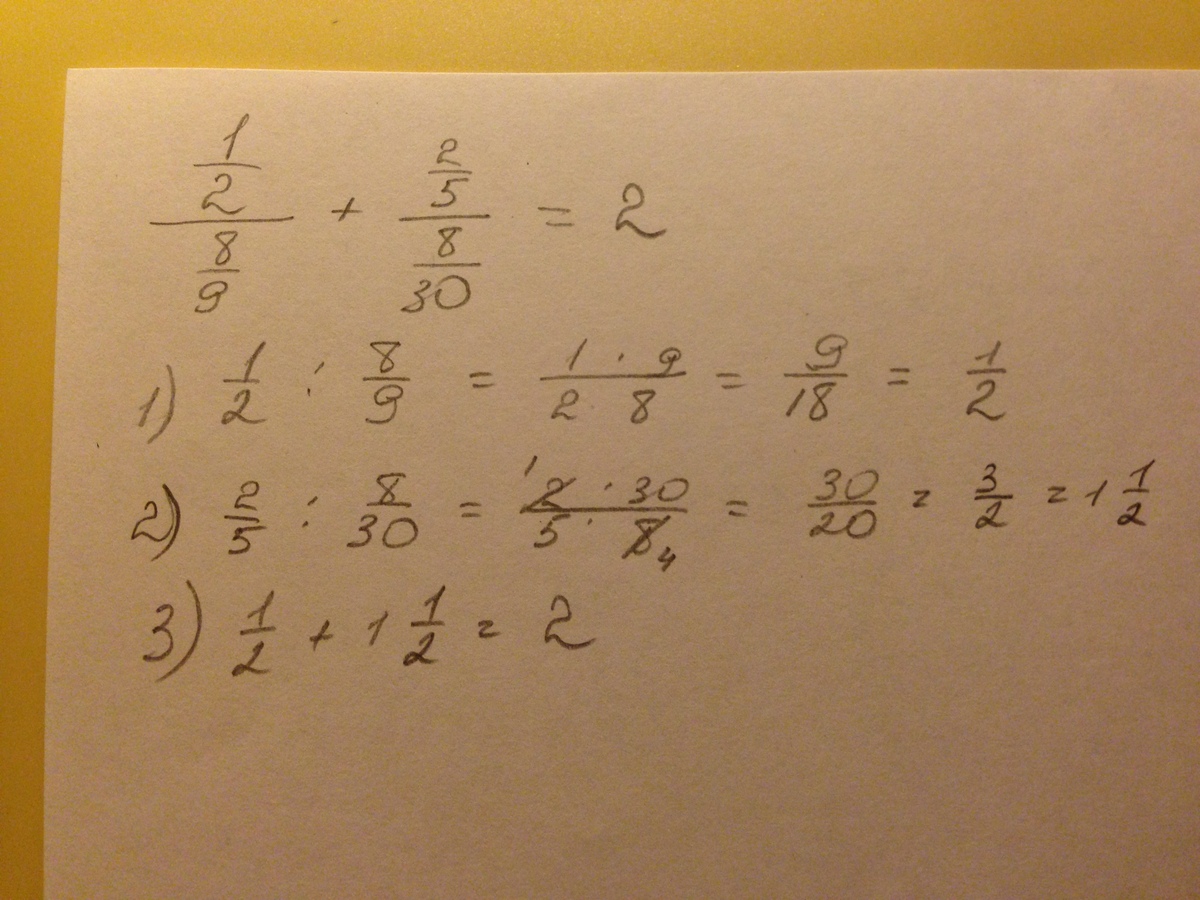 1/2 / 8/9 + 2/5 / 8/30 = 2
1) 1/2 : 8/9 = 1 · 9 / 2 · 8 = 9/18 = 1/2
2) 2/5 : 8/30 = 1 2 · 30 / 5 · 8 4 = 30/20 = 3/2 = 1 1/2
3) 1/2 + 1 1/2 = 2